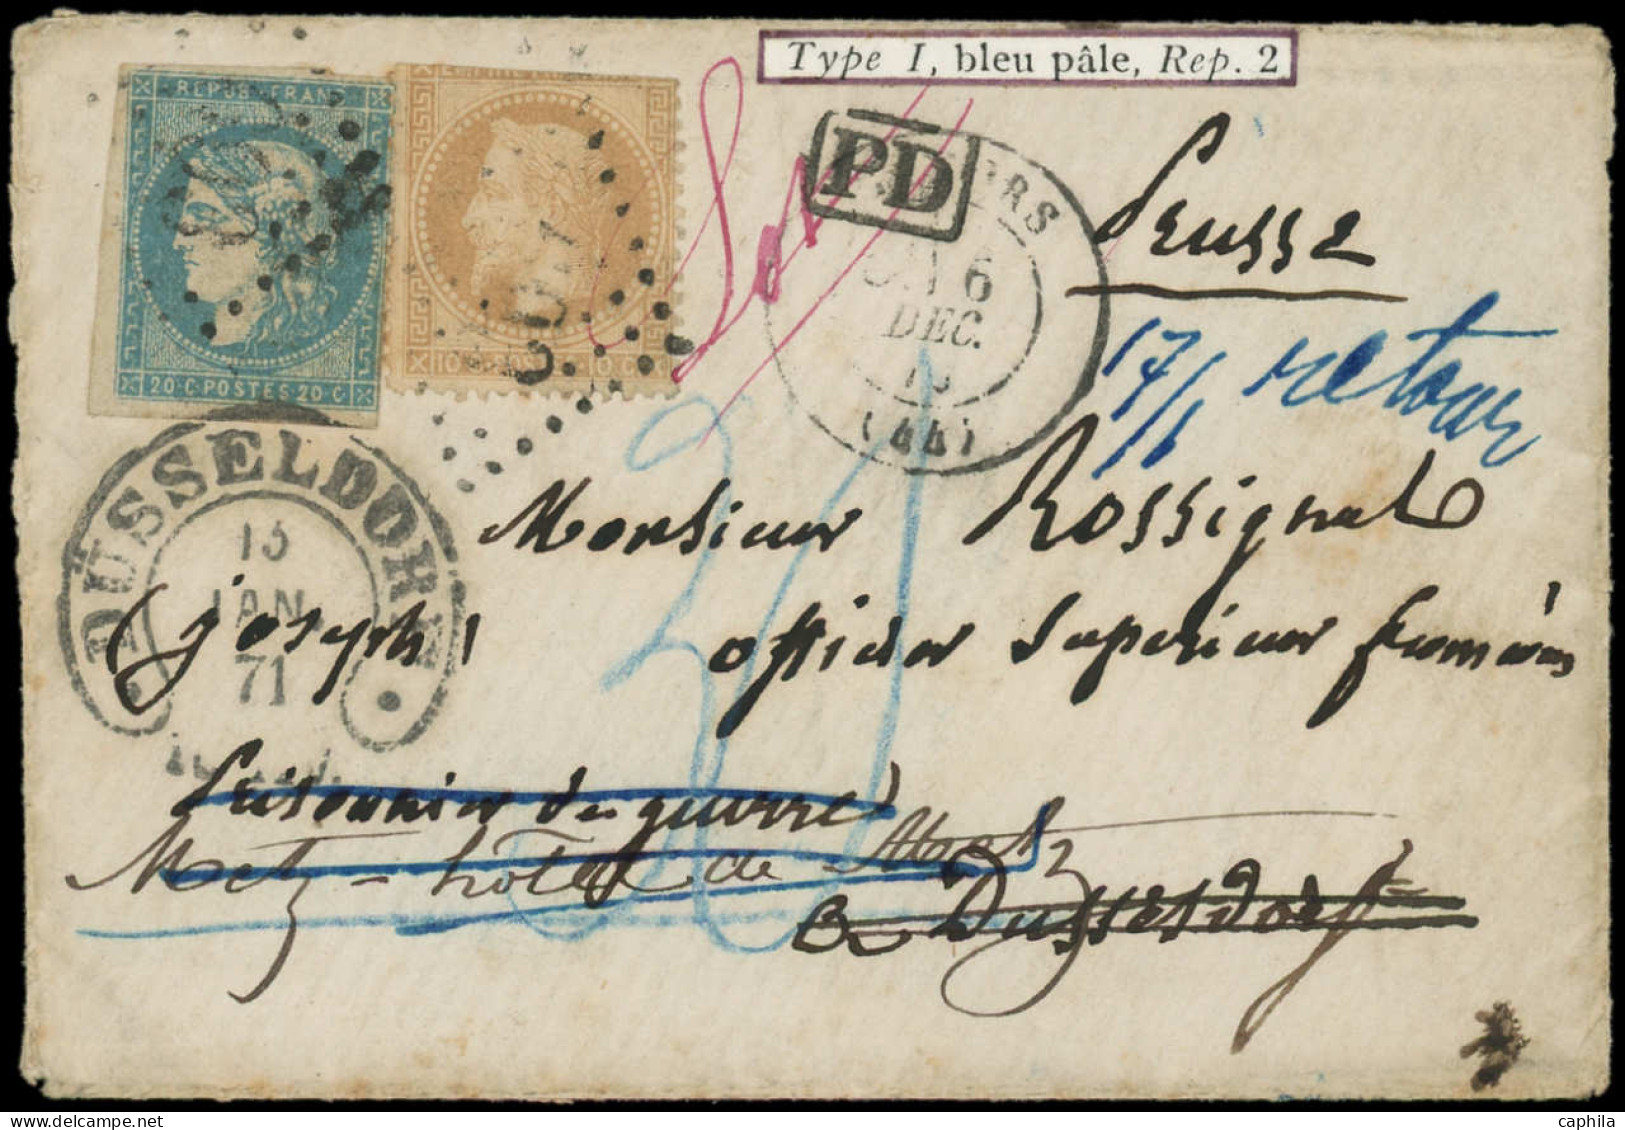 Type I, bleu pâle, Rep. 2
REPUB. FRANC.
20 C. POSTES 20 C.
10 C.
PD
RS
6
DEC.
(44)
Prusse
17/1 retour
DÜSSELDORF
13
JAN
71
Monsieur Rossignol
(Joseph)
officier Supérieur français
Prisonnier de guerre
Metz - hôtel de Metz
à Dusseldorf
caphila